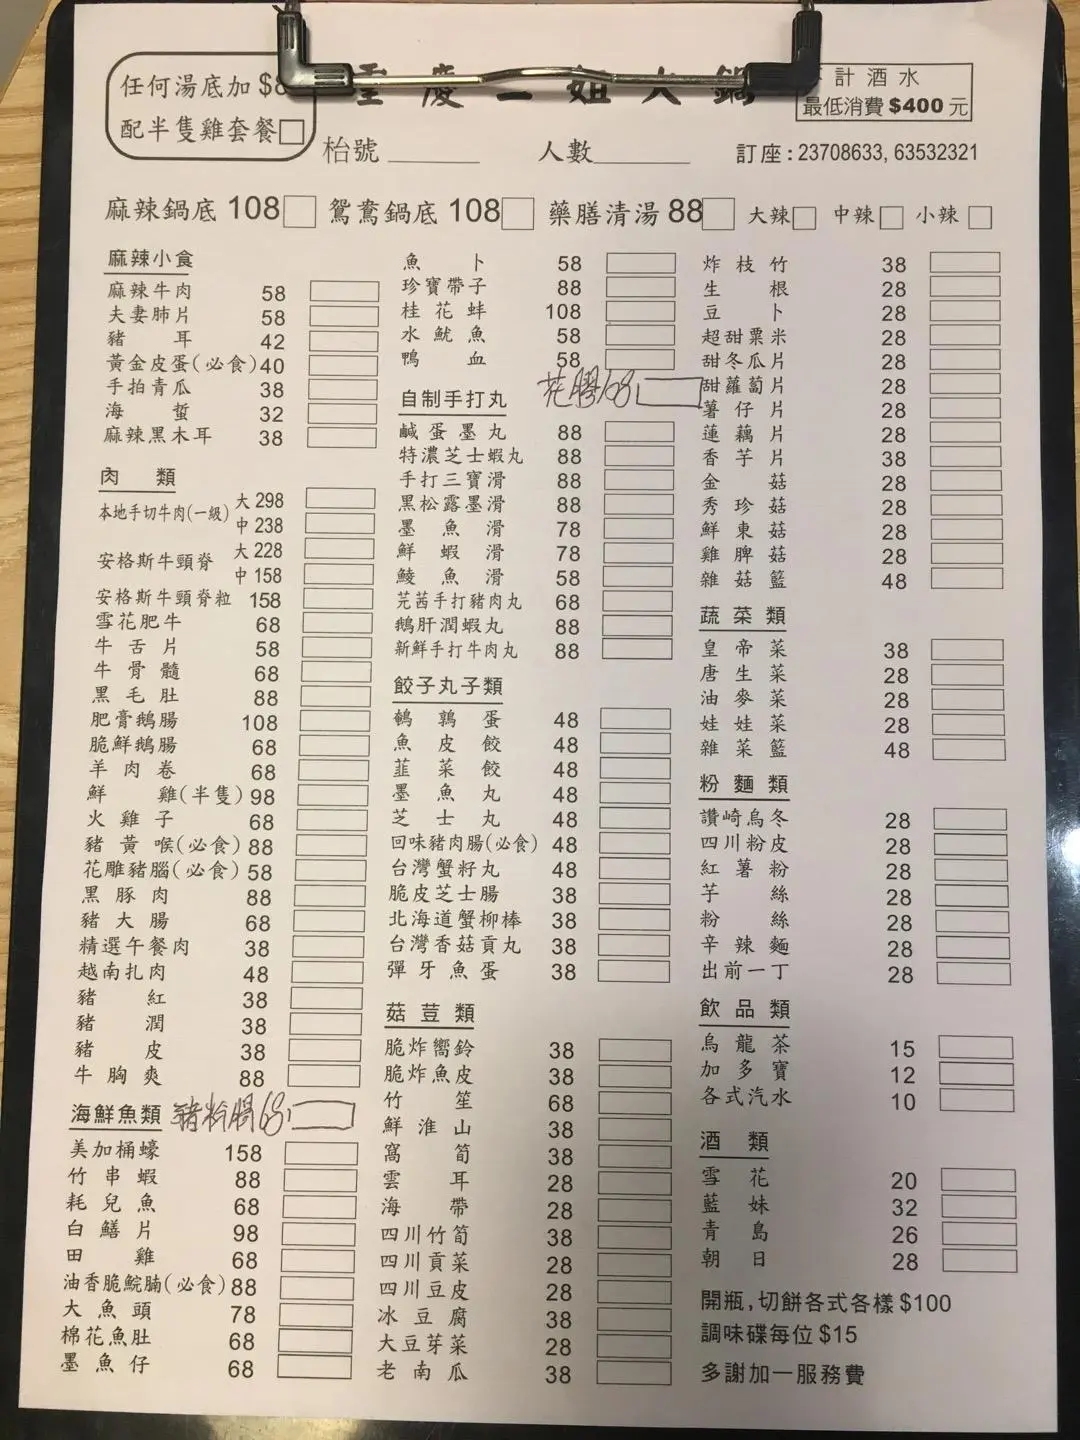 任何湯底加 $8
配半隻雞套餐
重慶二姐火鍋
計酒水
最低消費 $400 元
枱號
人數
訂座: 23708633, 63532321
麻辣鍋底 108
鴛鴦鍋底 108
藥膳清湯 88
大辣
中辣
小辣
麻辣小食
麻辣牛肉 58
夫妻肺片 58
豬耳 42
黃金皮蛋(必食) 40
手拍青瓜 38
海蜇 32
麻辣黑木耳 38
肉類
本地手切牛肉(一級) 大 298
中 238
安格斯牛頸脊 大 228
中 158
安格斯牛頸脊粒 158
雪花肥牛 68
牛舌片 58
牛骨髓 68
黑毛肚 88
肥膏鵝腸 108
脆鮮鵝腸 68
羊肉卷 68
鮮雞(半隻) 98
火雞子 68
豬黃喉(必食) 88
花雕豬腦(必食) 58
黑豚肉 88
豬大腸 68
精選午餐肉 38
越南扎肉 48
豬紅 38
豬潤 38
豬皮 38
牛胸爽 88
海鮮魚類
豬粉腸 68
美加桶蠔 158
竹串蝦 88
耗兒魚 68
白鱔片 98
田雞 68
油香脆鯇腩(必食) 88
大魚頭 78
棉花魚肚 68
墨魚仔 68
魚卜 58
珍寶帶子 88
桂花蚌 108
水魷魚 58
鴨血 58
花膠 168
自制手打丸
鹹蛋墨丸 88
特濃芝士蝦丸 88
手打三寶滑 88
黑松露墨滑 88
墨魚滑 78
鮮蝦滑 78
鯪魚滑 58
芫茜手打豬肉丸 68
鵝肝潤蝦丸 88
新鮮手打牛肉丸 88
餃子丸子類
鵪鶉蛋 48
魚皮餃 48
韮菜餃 48
墨魚丸 48
芝士丸 48
回味豬肉腸(必食) 48
台灣蟹籽丸 48
脆皮芝士腸 38
北海道蟹柳棒 38
台灣香菇貢丸 38
彈牙魚蛋 38
菇荳類
脆炸嚮鈴 38
脆炸魚皮 38
竹笙 68
鮮淮山 38
窩筍 38
雲耳 28
海帶 28
四川竹筍 38
四川貢菜 28
四川豆皮 28
冰豆腐 38
大豆芽菜 28
老南瓜 38
炸枝竹 38
生根 28
豆卜 28
超甜粟米 28
甜冬瓜片 28
甜蘿蔔片 28
薯仔片 28
蓮藕片 28
香芋片 38
金菇 28
秀珍菇 28
鮮東菇 28
雞脾菇 28
雜菇籃 48
蔬菜類
皇帝菜 38
唐生菜 28
油麥菜 28
娃娃菜 28
雜菜籃 48
粉麵類
讚崎烏冬 28
四川粉皮 28
紅薯粉 28
芋絲 28
粉絲 28
辛辣麵 28
出前一丁 28
飲品類
烏龍茶 15
加多寶 12
各式汽水 10
酒類
雪花 20
藍妹 32
青島 26
朝日 28
開瓶,切餅各式各樣 $100
調味碟每位 $15
多謝加一服務費